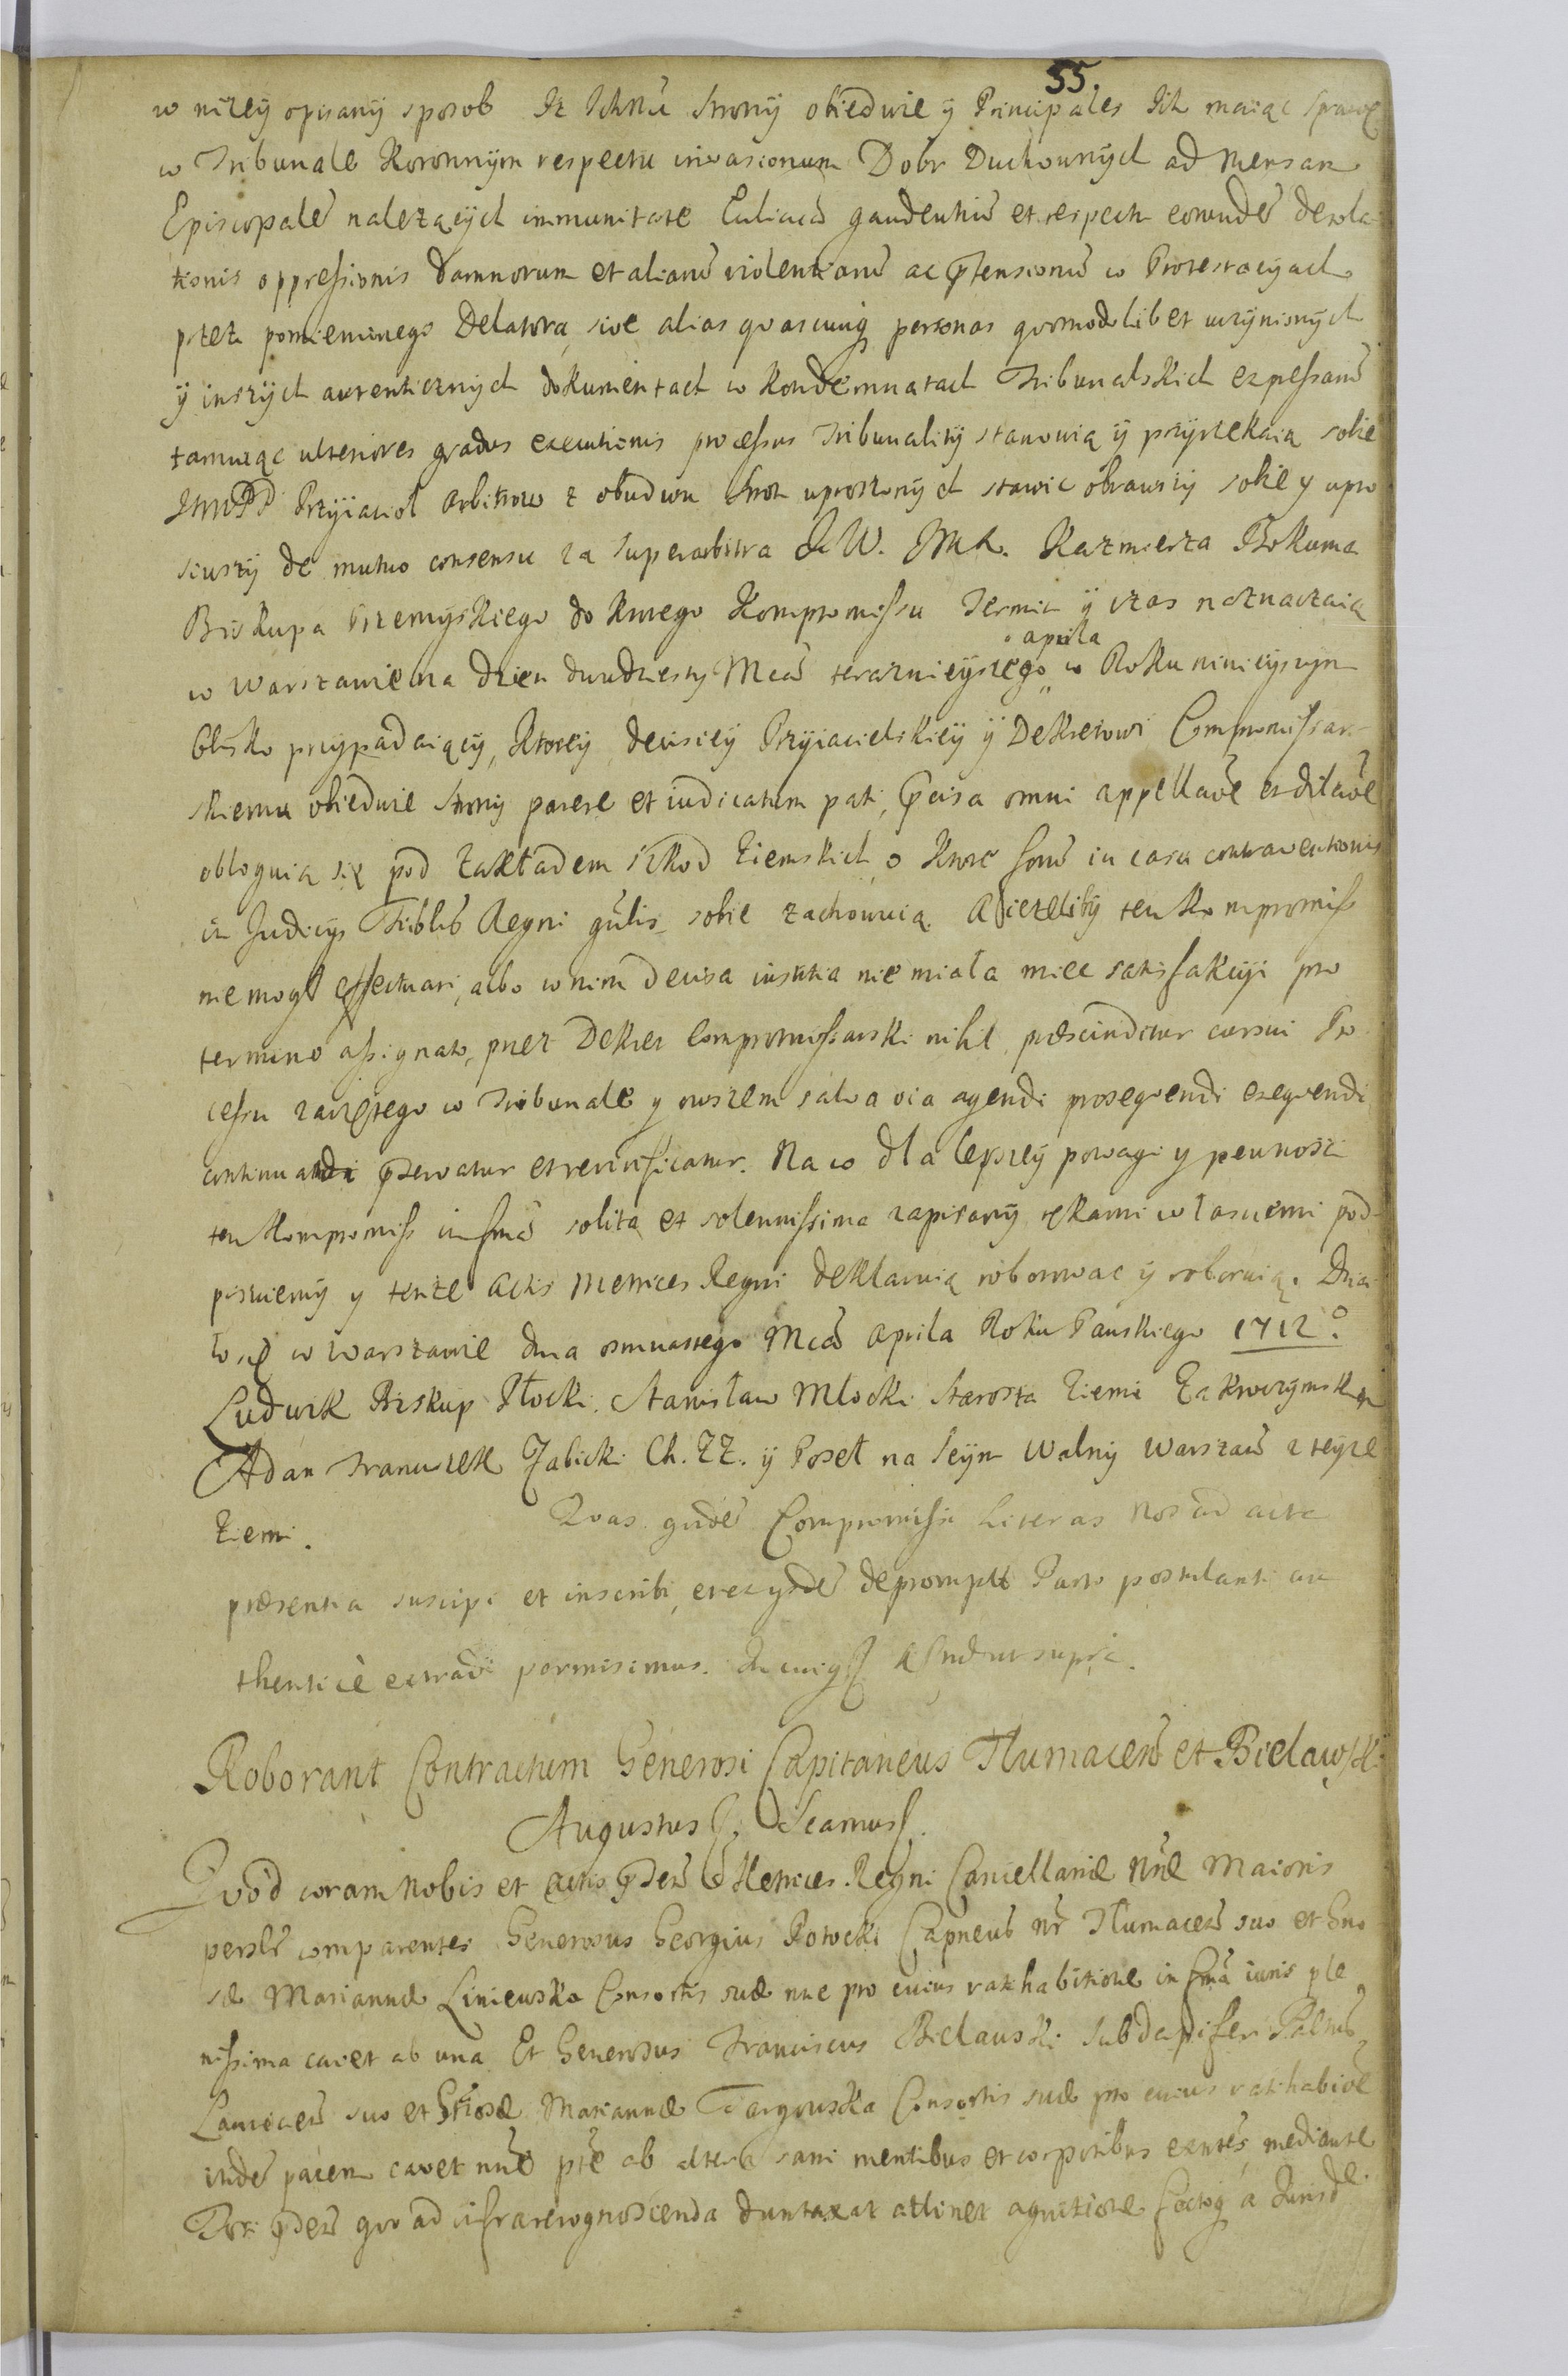 55.
w niżey opisany sposob Iż Ichmć Strony obiedwie y Principales Ich maiąc sprawę
w Tribunale Koronnym respectu invasionum Dobr Duchownych ad Mensam
Episcopalē należących immunitate gaudentiū et respectu eorundē desola
tionis oppressionis damnorum et aliarū violentiarū ac ptensionū w Protestacyach
przez pomienionego Delatora sive alias quascunq personas quomodolibet uczynionych
y inszych autenticznych dokumentach w kondemnatach Tribunalskich expressarū
tamuiąc ulteriores gradus executionis processus Tribunality stanowią y przyrzekaią sobie
Przyiacioł Arbitrow z obudwu Stron uproszonych stawic obrawszy sobie y upro
siwszy de mutuo consensu za Superarbitra J W. Kazmierza Bokuma
Biskupa Przemyskiego do ktorego Kompromissu Termin y czas naznaczaią
aprila
w Warszawie na dzien dwudziesty Mcā teraznieyszego w Roku ninieyszym
blisko przypadaiący, Ktorey decisiey Przyiacielskiey y Dekretowi Compromissar
skiemu obiedwie Strony parere et iudicatum pati, omni appellaōe et dilaōe
obloguią się pod zakładem szkod ziemskich o ktore forū in casu contraventionis
in Judicijs Tribłib Regni gńlis sobie zachowuią. A ieżeliby ten Kompromiss
nie mogł effectuari, albo w nim decisa iustitia nie miała miec satisfakcyi pro
termino assignato, przez Dekret Compromissarski nihil præscinditur cursui Pro
cessu zaczętego w Tribunale y owszem salva via agendi prosequendi exequendi
continuandi pserwatur et revivificatur. Na co dla lepszey powagi y pewnosci
ten Kompromiss in fmā solita et solennissima zapisany rękami własnemi pod
pisuiemy y tenże Actis Metrices Regni deklaruią roborowac y roboruią. Dzia
ło się w Warszawie dnia osmnastego Mcā Aprila Roku Pańskiego 1712°.
Ludwik Biskup Płocki. Stanisław Młocki Starosta Ziemi Zakroczymskiey
Adam Franciszek Ch. ZZ. y Poseł na Seym Walny Warszaw z teyze
Ziemi. Quas quidē Compromissi Literas Nos ad acta
præsentia suscipi et inscribi, et ex ijsdē depromptū Parti postulanti au
thenticè extradi permisimus. In cuius ut supra.
Roborant Contractum Generosi Capitaneus Tłumaceń et Bielawski
Augustus
Quod coram Nobis et Actis pdeń Metrices Regni Cancellariæ Nrē Maioris
comparentes Generosus Georgius Potocki Capneus Nr Tłumaceń suo et Gno
sæ Mariannæ Liniewska Consortis suæ nne pro cuius ratihabitione in fmā iuris ple
nissima cavet ab una. Et Generosus Franciscus Bielawski Subdapifer
suo et Gnosæ Mariannæ Targowska Consortis suæ pro cuius ratihabiōe
itidē pariem cavet nnē pte ab altera sani mentibus et corporibus exntēs, mediante
pdeń quo ad infrarecognoscenda duntaxat attinet agnitione factoq a